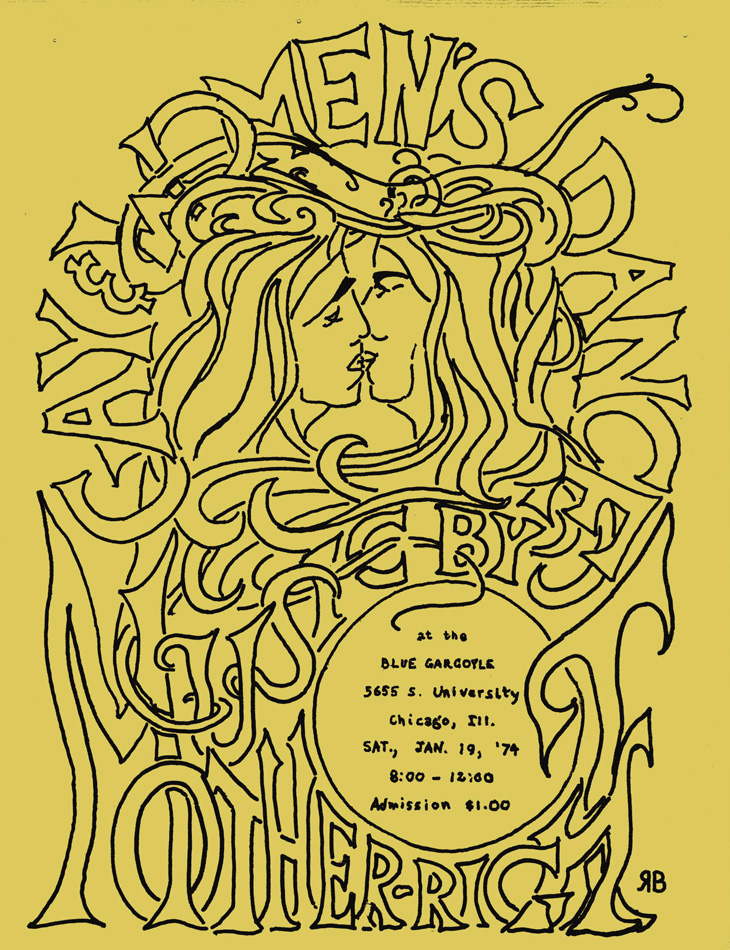 GAY & WOMEN'S DANCE
MUSIC BY
MOTHER-RIGHT
at the
BLUE GARGOYLE
5655 S. University
Chicago, Ill.
SAT., JAN. 19, '74
8:00 - 12:00
Admission $1.00
RB